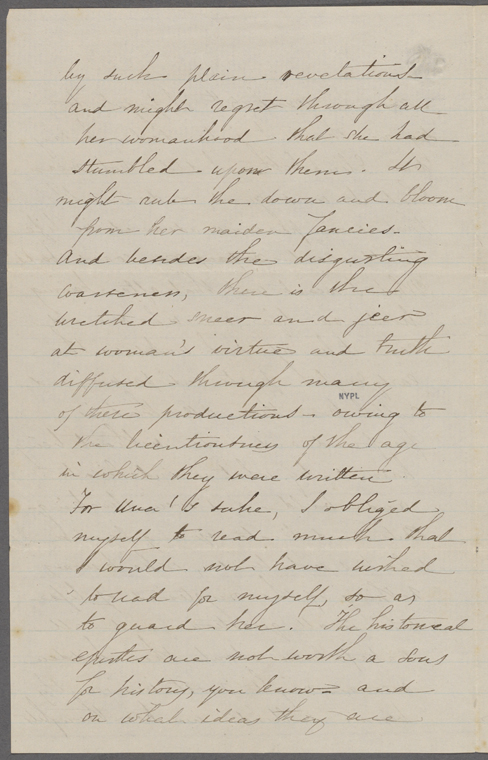 by such plain revelations
and might regret through all
her womanhood that she had
stumbled upon them. It
might rub the down and bloom
from her maiden fancies.
And besides the disgusting
coarseness, there is the
wretched sneer and jeer
at woman's virtue and truth
diffused through many
NYPL
of these productions - owing to
the licentiousness of the age
in which they were written
For Una's sake, I obliged
myself to read much that
I would not have wished
to read for myself, so as
to guard her. The historical
epistles are not worth a sous
for history, you know - and
on what ideas they are